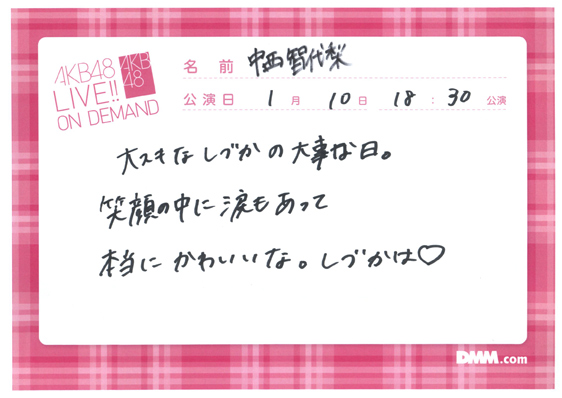 AKB48
LIVE!!
ON DEMAND
AKB
48
名前 中西智代梨
公演日 1月 10日 18:30 公演
大スキなしづかの大事な日。
笑顔の中に涙もあって
本当にかわいいな。しづかは♡
DMM.com